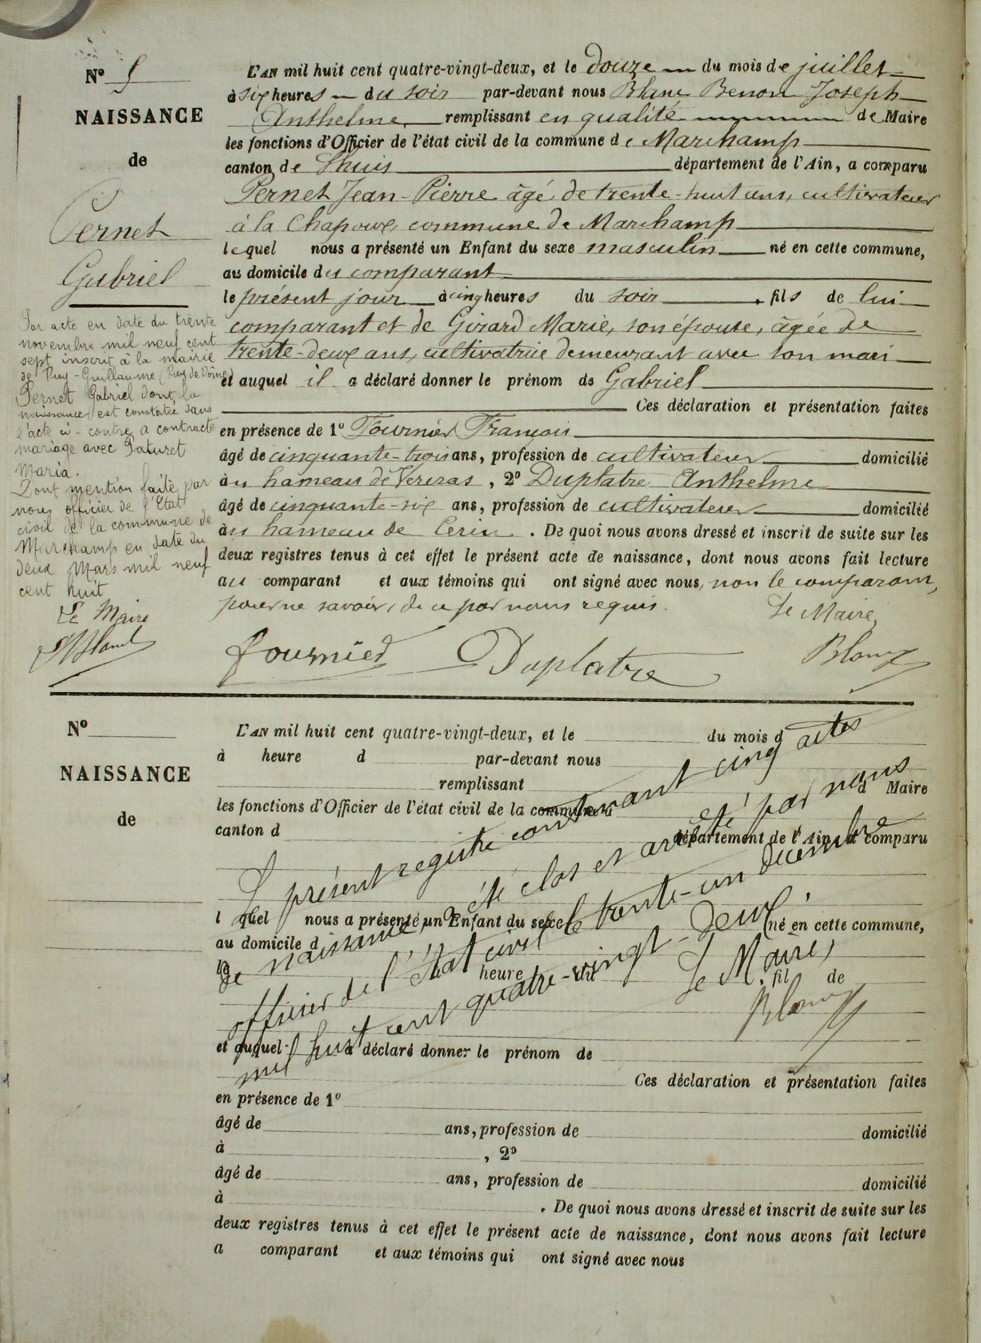 N° 5
NAISSANCE
de
Pernet
Gabriel
Par acte en date du trente
novembre mil neuf cent
sept, inscrit à la mairie
de Puy-Guillaume (Puy de Dôme)
Pernet Gabriel dont la
naissance est constatée dans
l'acte ci-contre, a contracté
mariage avec
Maria.
Dont mention faite par
nous officier de l'Etat
civil de la commune de
Marchamp en date du
deux Mars mil neuf
cent huit
Le Maire
L'AN mil huit cent quatre-vingt-deux, et le douze du mois de juillet
à six heures du soir par-devant nous Blanc Benon Joseph
Anthelme remplissant en qualité de Maire
les fonctions d'Officier de l'état civil de la commune de Marchamp
canton de Lhuis département de l'Ain, a comparu
Pernet Jean-Pierre âgé de trente-huit ans, cultivateur
à la Chapoux, commune de Marchamp
lequel nous a présenté un Enfant du sexe masculin né en cette commune,
au domicile du comparant
le présent jour à cinq heures du soir, fils de lui
comparant et de Girard Marie, son épouse, âgée de
trente-deux ans, cultivatrice demeurant avec son mari
et auquel il a déclaré donner le prénom de Gabriel
Ces déclaration et présentation faites
en présence de 1° Fournier François
âgé de cinquante-trois ans, profession de cultivateur domicilié
au hameau de , 2° Duplatre Anthelme
âgé de cinquante-six ans, profession de cultivateur domicilié
au hameau de Cerin. De quoi nous avons dressé et inscrit de suite sur les
deux registres tenus à cet effet le présent acte de naissance, dont nous avons fait lecture
au comparant et aux témoins qui ont signé avec nous, non le comparant,
pour ne savoir, de ce par nous requis. Le Maire,
Fournier Duplatre Blanc
N°
NAISSANCE
de
L'AN mil huit cent quatre-vingt-deux, et le du mois d
à heure d par-devant nous
remplissant d Maire
les fonctions d'Officier de l'état civil de la commune d
canton d département de l'Ain, a comparu
l quel nous a présenté un Enfant du sexe né en cette commune,
au domicile d
le à heure du fil de
et auquel a déclaré donner le prénom de
Ces déclaration et présentation faites
en présence de 1°
âgé de ans, profession de domicilié
à , 2°
âgé de ans, profession de domicilié
à . De quoi nous avons dressé et inscrit de suite sur les
deux registres tenus à cet effet le présent acte de naissance, dont nous avons fait lecture
a comparant et aux témoins qui ont signé avec nous
Le présent registre contenant cinq actes
de naissance, a été clos et arrêté par nous
officier de l'état civil le trente-un décembre
mil huit cent quatre-vingt-deux.
Le Maire,
Blanc